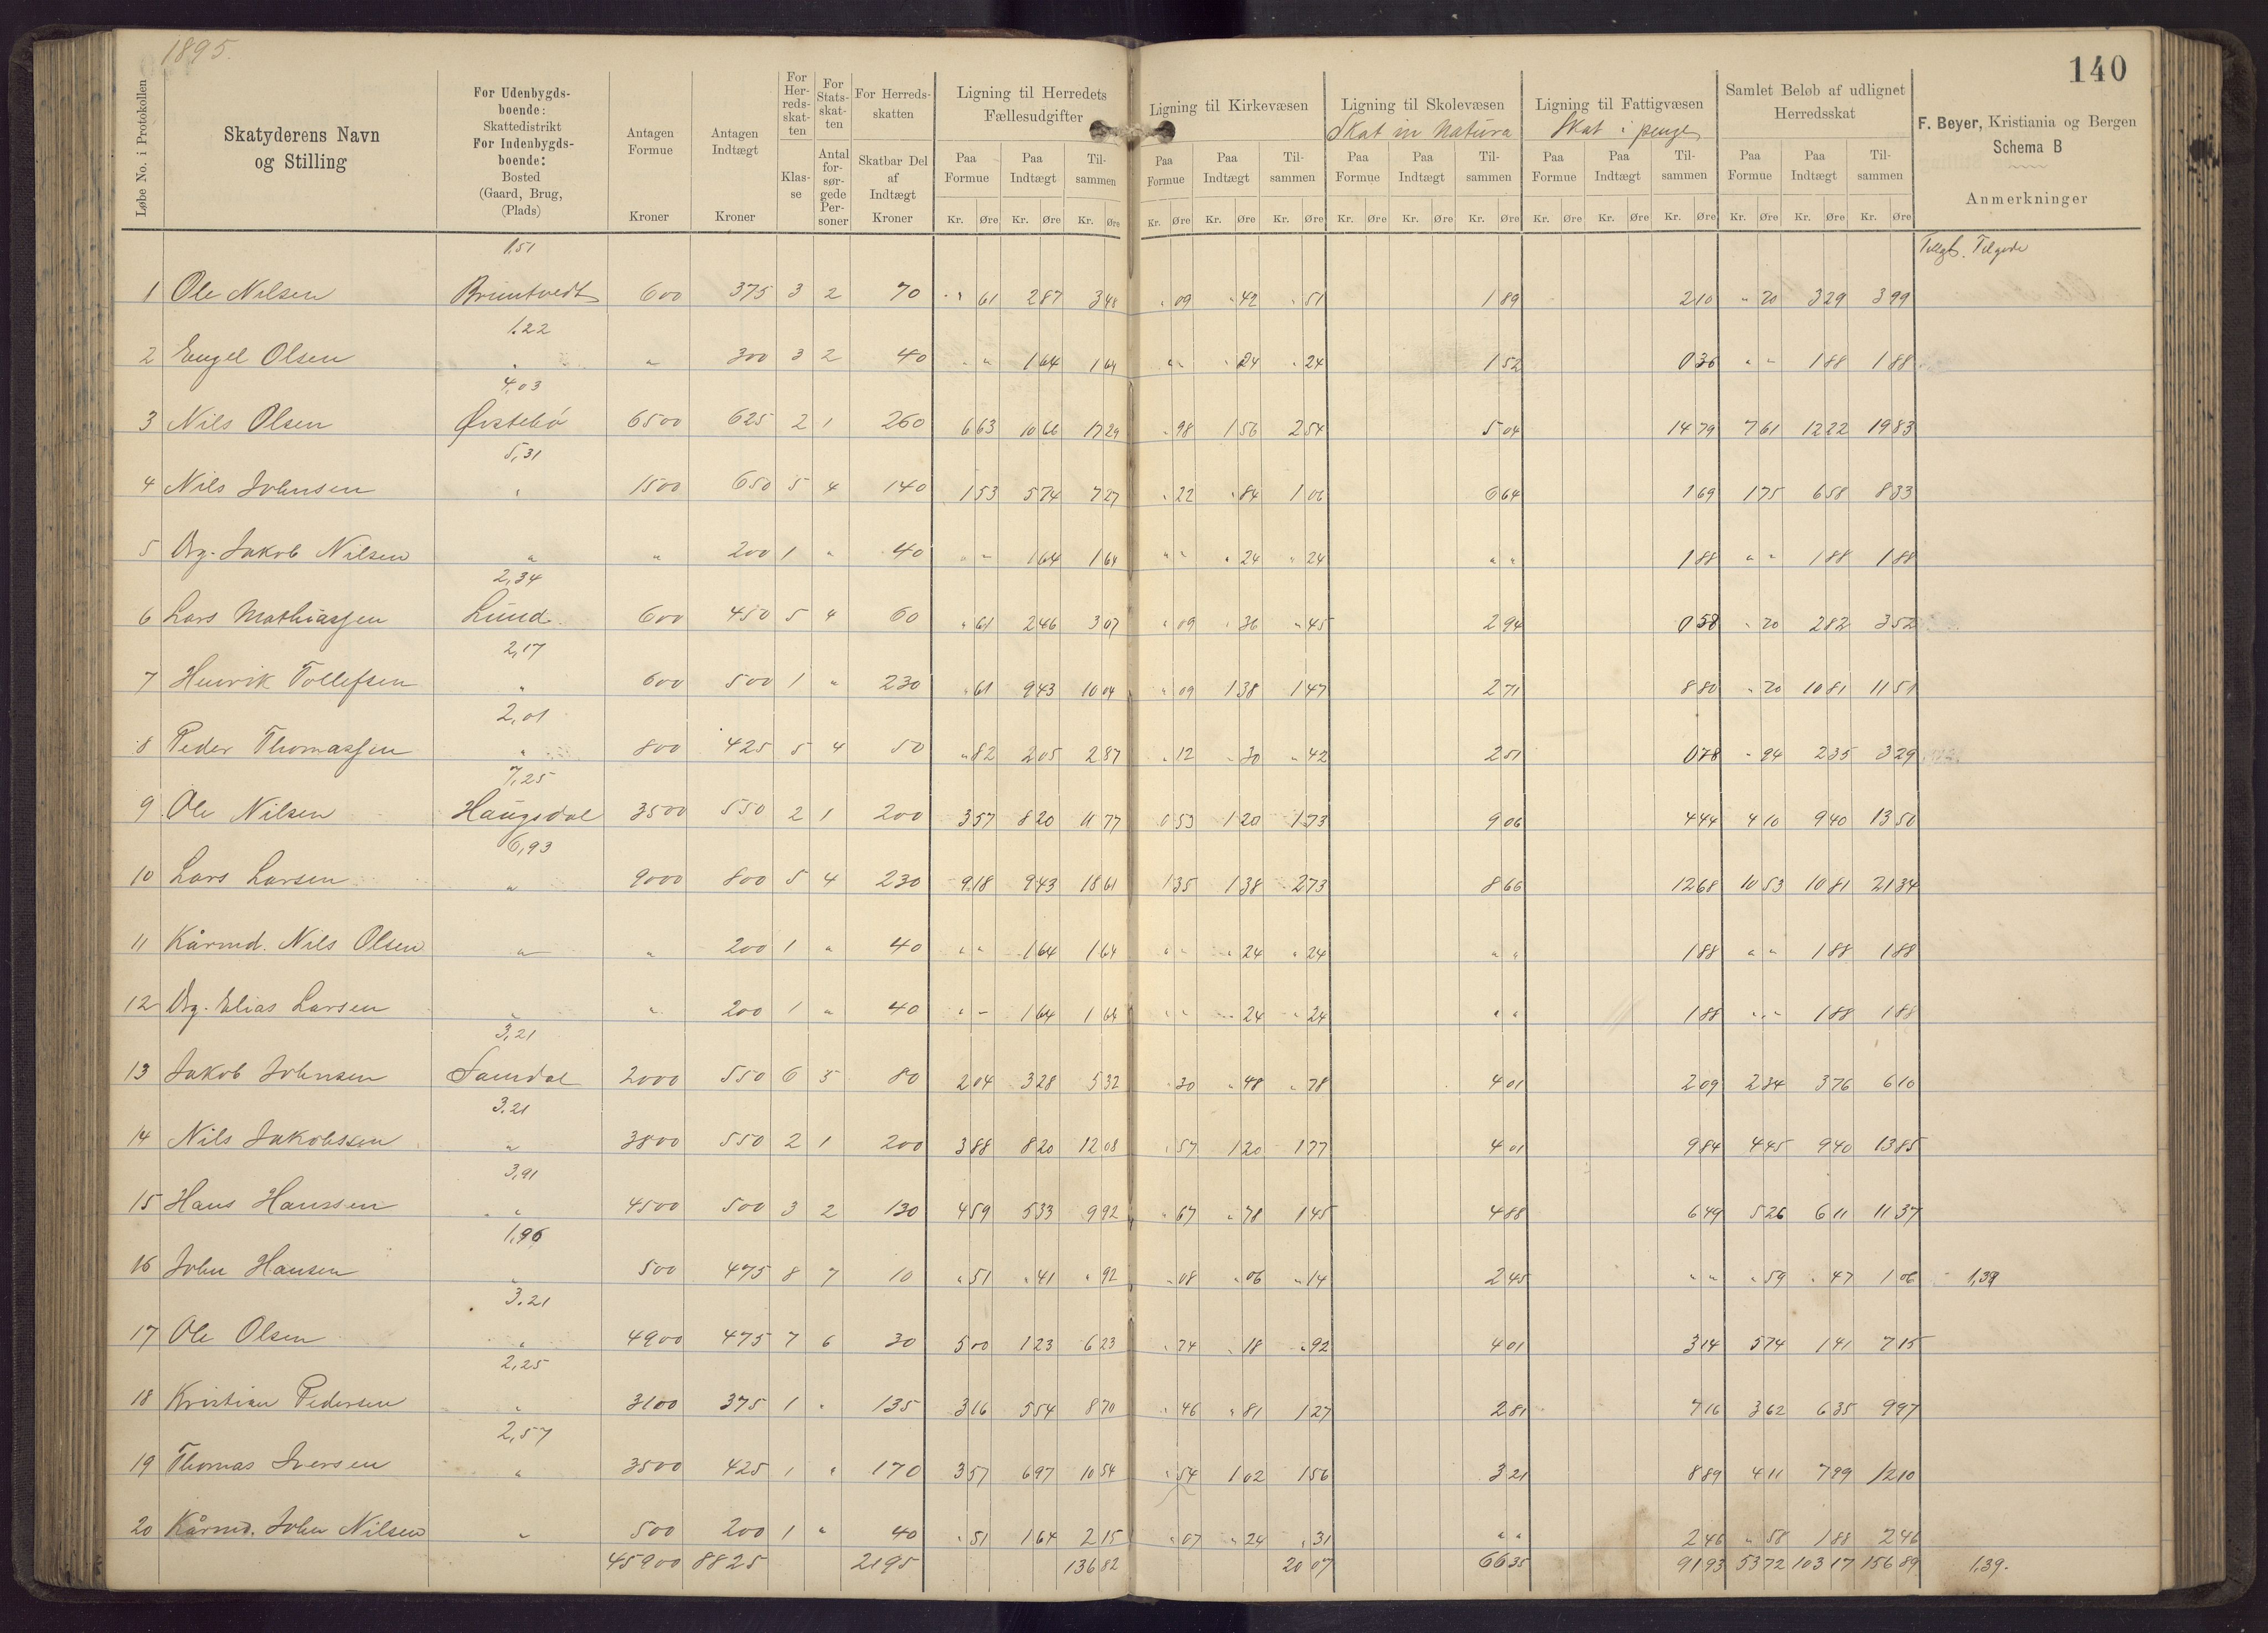 1895.
140
Løbe No. i Protokollen
Skatyderens Navn og Stilling
For Udenbygdsboende: Skattedistrikt For Indenbygdsboende: Bosted (Gaard, Brug, (Plads)
Antagen Formue Kroner
Antagen Indtægt Kroner
For Herredsskatten Klasse
For Statsskatten Antal forsørgede Personer
For Herredsskatten Skatbar Del af Indtægt Kroner
Ligning til Herredets Fællesudgifter
Paa Formue Paa Indtægt Tilsammen
Kr. Øre Kr. Øre Kr. Øre
Ligning til Kirkevæsen
Paa Formue Paa Indtægt Tilsammen
Kr. Øre Kr. Øre Kr. Øre
Ligning til Skolevæsen
Skat in Natura
Paa Formue Paa Indtægt Tilsammen
Kr. Øre Kr. Øre Kr. Øre
Ligning til Fattigvæsen
Skat i penge
Paa Formue Paa Indtægt Tilsammen
Kr. Øre Kr. Øre Kr. Øre
Samlet Beløb af udlignet Herredsskat
Paa Formue Paa Indtægt Tilsammen
Kr. Øre Kr. Øre Kr. Øre
F. Beyer, Kristiania og Bergen
Schema B
Anmerkninger
Tilgode
1,51
1 Ole Nilsen Bruntvedt 600 375 3 2 70 " 61 2 87 3 48 " 09 " 42 " 51 1 89 2 10 " 70 3 29 3 99
1.22
2 Engel Olsen " " 300 3 2 40 " " 1 64 1 64 " " " 24 " 24 1 52 0 36 " " 1 88 1 88
4,03
3 Nils Olsen Østebø 6500 625 2 1 260 6 63 10 66 17 29 " 98 1 56 2 54 5 04 14 79 7 61 12 22 19 83
5,31
4 Nils Johnsen " 1500 650 5 4 140 1 53 5 74 7 27 " 22 " 84 1 06 6 64 1 69 1 75 6 58 8 33
5 Dg. Jakob Nilsen " " 200 1 " 40 " " 1 64 1 64 " " " 24 " 24 " " 1 88 " " 1 88 1 88
2,34
6 Lars Mathiassen Lund 600 450 5 4 60 " 61 2 46 3 07 " 09 " 36 " 45 2 94 0 58 " 70 2 82 3 52
2,17
7 Henrik Tollefsen " 600 500 1 " 230 " 61 9 43 10 04 " 09 1 38 1 47 2 71 8 80 " 70 10 81 11 51
2,01
8 Peder Thomassen " 800 425 5 4 50 " 82 2 05 2 87 " 12 " 30 " 42 2 51 0 78 " 94 2 35 3 29
7,25
9 Ole Nilsen Haugsdal 3500 550 2 1 200 3 57 8 20 11 77 0 53 1 20 1 73 9 06 4 44 4 10 9 40 13 50
6,93
10 Lars Larsen " 9000 800 5 4 230 9 18 9 43 18 61 1 35 1 38 2 73 8 66 12 68 10 53 10 81 21 34
11 Kårmd. Nils Olsen " " 200 1 " 40 " " 1 64 1 64 " " " 24 " 24 " " 1 88 " " 1 88 1 88
12 Dg. Elias Larsen " " 200 1 " 40 " " 1 64 1 64 " " " 24 " 24 " " 1 88 " " 1 88 1 88
3,21
13 Jakob Johnsen Samdal 2000 550 6 5 80 2 04 3 28 5 32 " 30 " 48 " 78 4 01 2 09 2 34 3 76 6 10
3.21
14 Nils Jakobssen " 3800 550 2 1 200 3 88 8 20 12 08 " 57 1 20 1 77 4 01 9 84 4 45 9 40 13 85
3,91
15 Hans Hanssen " 4500 500 3 2 130 4 59 5 33 9 92 " 67 " 78 1 45 4 88 6 49 5 26 6 11 11 37
1,96
16 John Hansen " 500 475 8 7 10 " 51 " 41 " 92 " 08 " 06 " 14 2 45 " " " 59 " 47 1 06 1,39
3.21
17 Ole Olsen " 4900 475 7 6 30 5 00 1 23 6 23 " 74 " 18 " 92 4 01 3 14 5 74 1 41 7 15
2,25
18 Kristian Pedersen " 3100 375 1 " 135 3 16 5 54 8 70 " 46 " 81 1 27 2 81 7 16 3 62 6 35 9 97
2,57
19 Thomas Iversen " 3500 425 1 " 170 3 57 6 97 10 54 " 54 1 02 1 56 3 21 8 89 4 11 7 99 12 10
20 Kårmd. John Nilsen " 500 200 1 " 40 " 51 1 64 2 15 " 07 " 24 " 31 " " 2 46 " 58 1 88 2 46
45900 8825 2195 136 82 20 07 66 35 91 93 53 72 103 17 156 89 1,39.